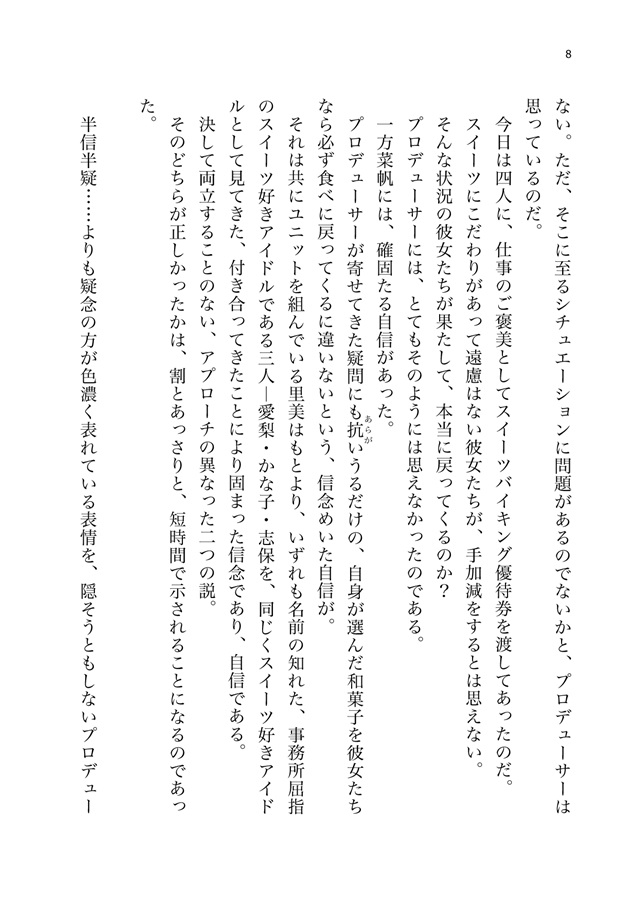 8
ない。ただ、そこに至るシチュエーションに問題があるのでないかと、プロデューサーは
思っているのだ。
今日は四人に、仕事のご褒美としてスイーツバイキング優待券を渡してあったのだ。
スイーツにこだわりがあって遠慮はない彼女たちが、手加減をするとは思えない。
そんな状況の彼女たちが果たして、本当に戻ってくるのか?
プロデューサーには、とてもそのようには思えなかったのである。
一方菜帆には、確固たる自信があった。
プロデューサーが寄せてきた疑問にも抗いうるだけの、自身が選んだ和菓子を彼女たち
あらが
なら必ず食べに戻ってくるに違いないという、信念めいた自信が。
それは共にユニットを組んでいる里美はもとより、いずれも名前の知れた、事務所屈指
のスイーツ好きアイドルである三人―愛梨・かな子・志保を、同じくスイーツ好きアイド
ルとして見てきた、付き合ってきたことにより固まった信念であり、自信である。
決して両立することのない、アプローチの異なった二つの説。
そのどちらが正しかったかは、割とあっさりと、短時間で示されることになるのであっ
た。
半信半疑……よりも疑念の方が色濃く表れている表情を、隠そうともしないプロデュー